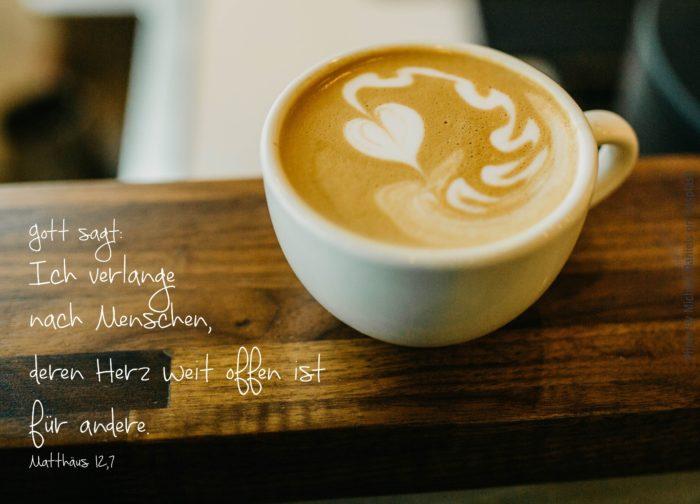 gott sagt:
Ich verlange
nach Menschen,
deren Herz weit offen ist
für andere.
Matthäus 12,7